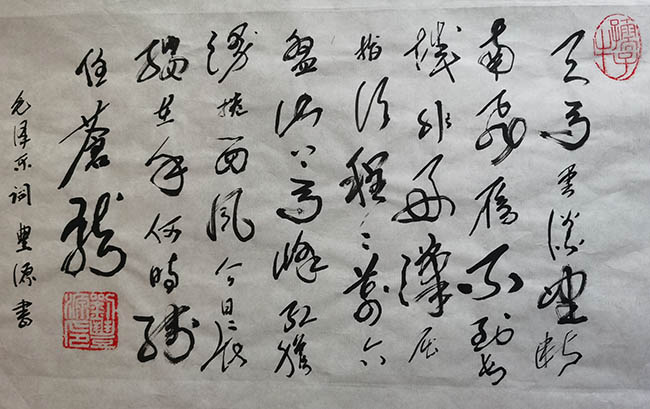 天高雲淡望斷
南飛雁不到長
城非好漢屈
指行程二萬六
盤山上高峰紅旗
漫捲西風今日長
纓在手何時縛
住蒼龍
毛澤东詞 豐源書